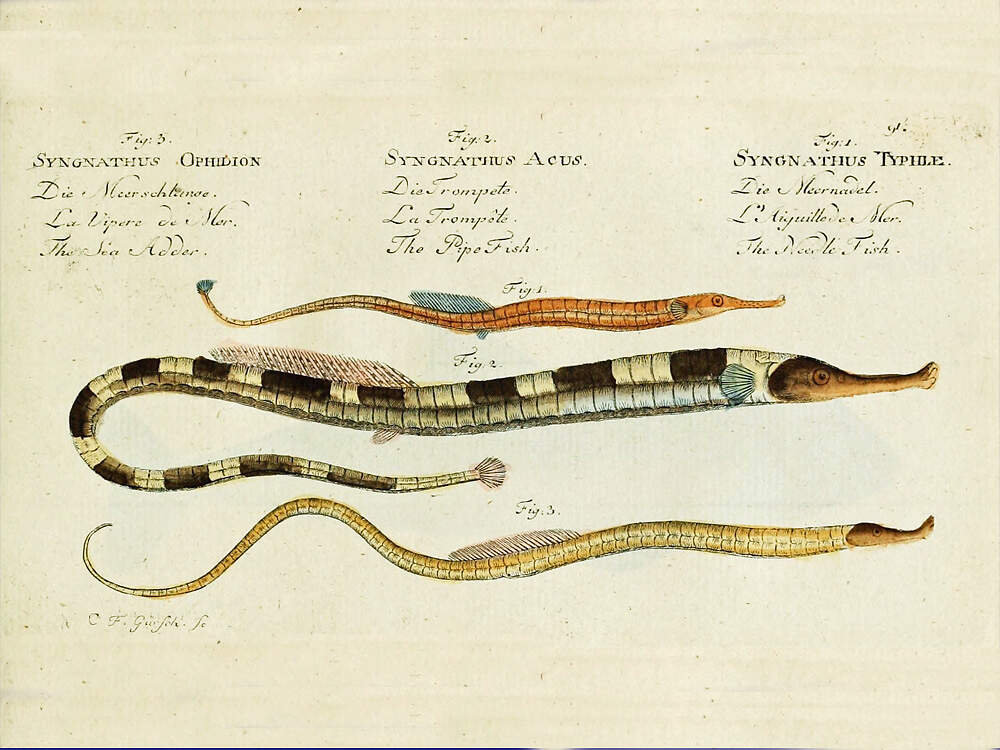 91.
Fig: 3.
SYNGNATHUS OPHIDION
Die Meerschlange.
La Vipere de Mer.
The Sea Adder.
Fig: 2.
SYNGNATHUS ACUS.
Die Trompete.
La Trompète.
The Pipe Fish.
Fig: 1.
SYNGNATHUS TYPHLE.
Die Meernadel.
L'Aiguille de Mer.
The Needle Fish.
Fig: 1.
Fig: 2.
Fig: 3.
C F. Gürsch. sc